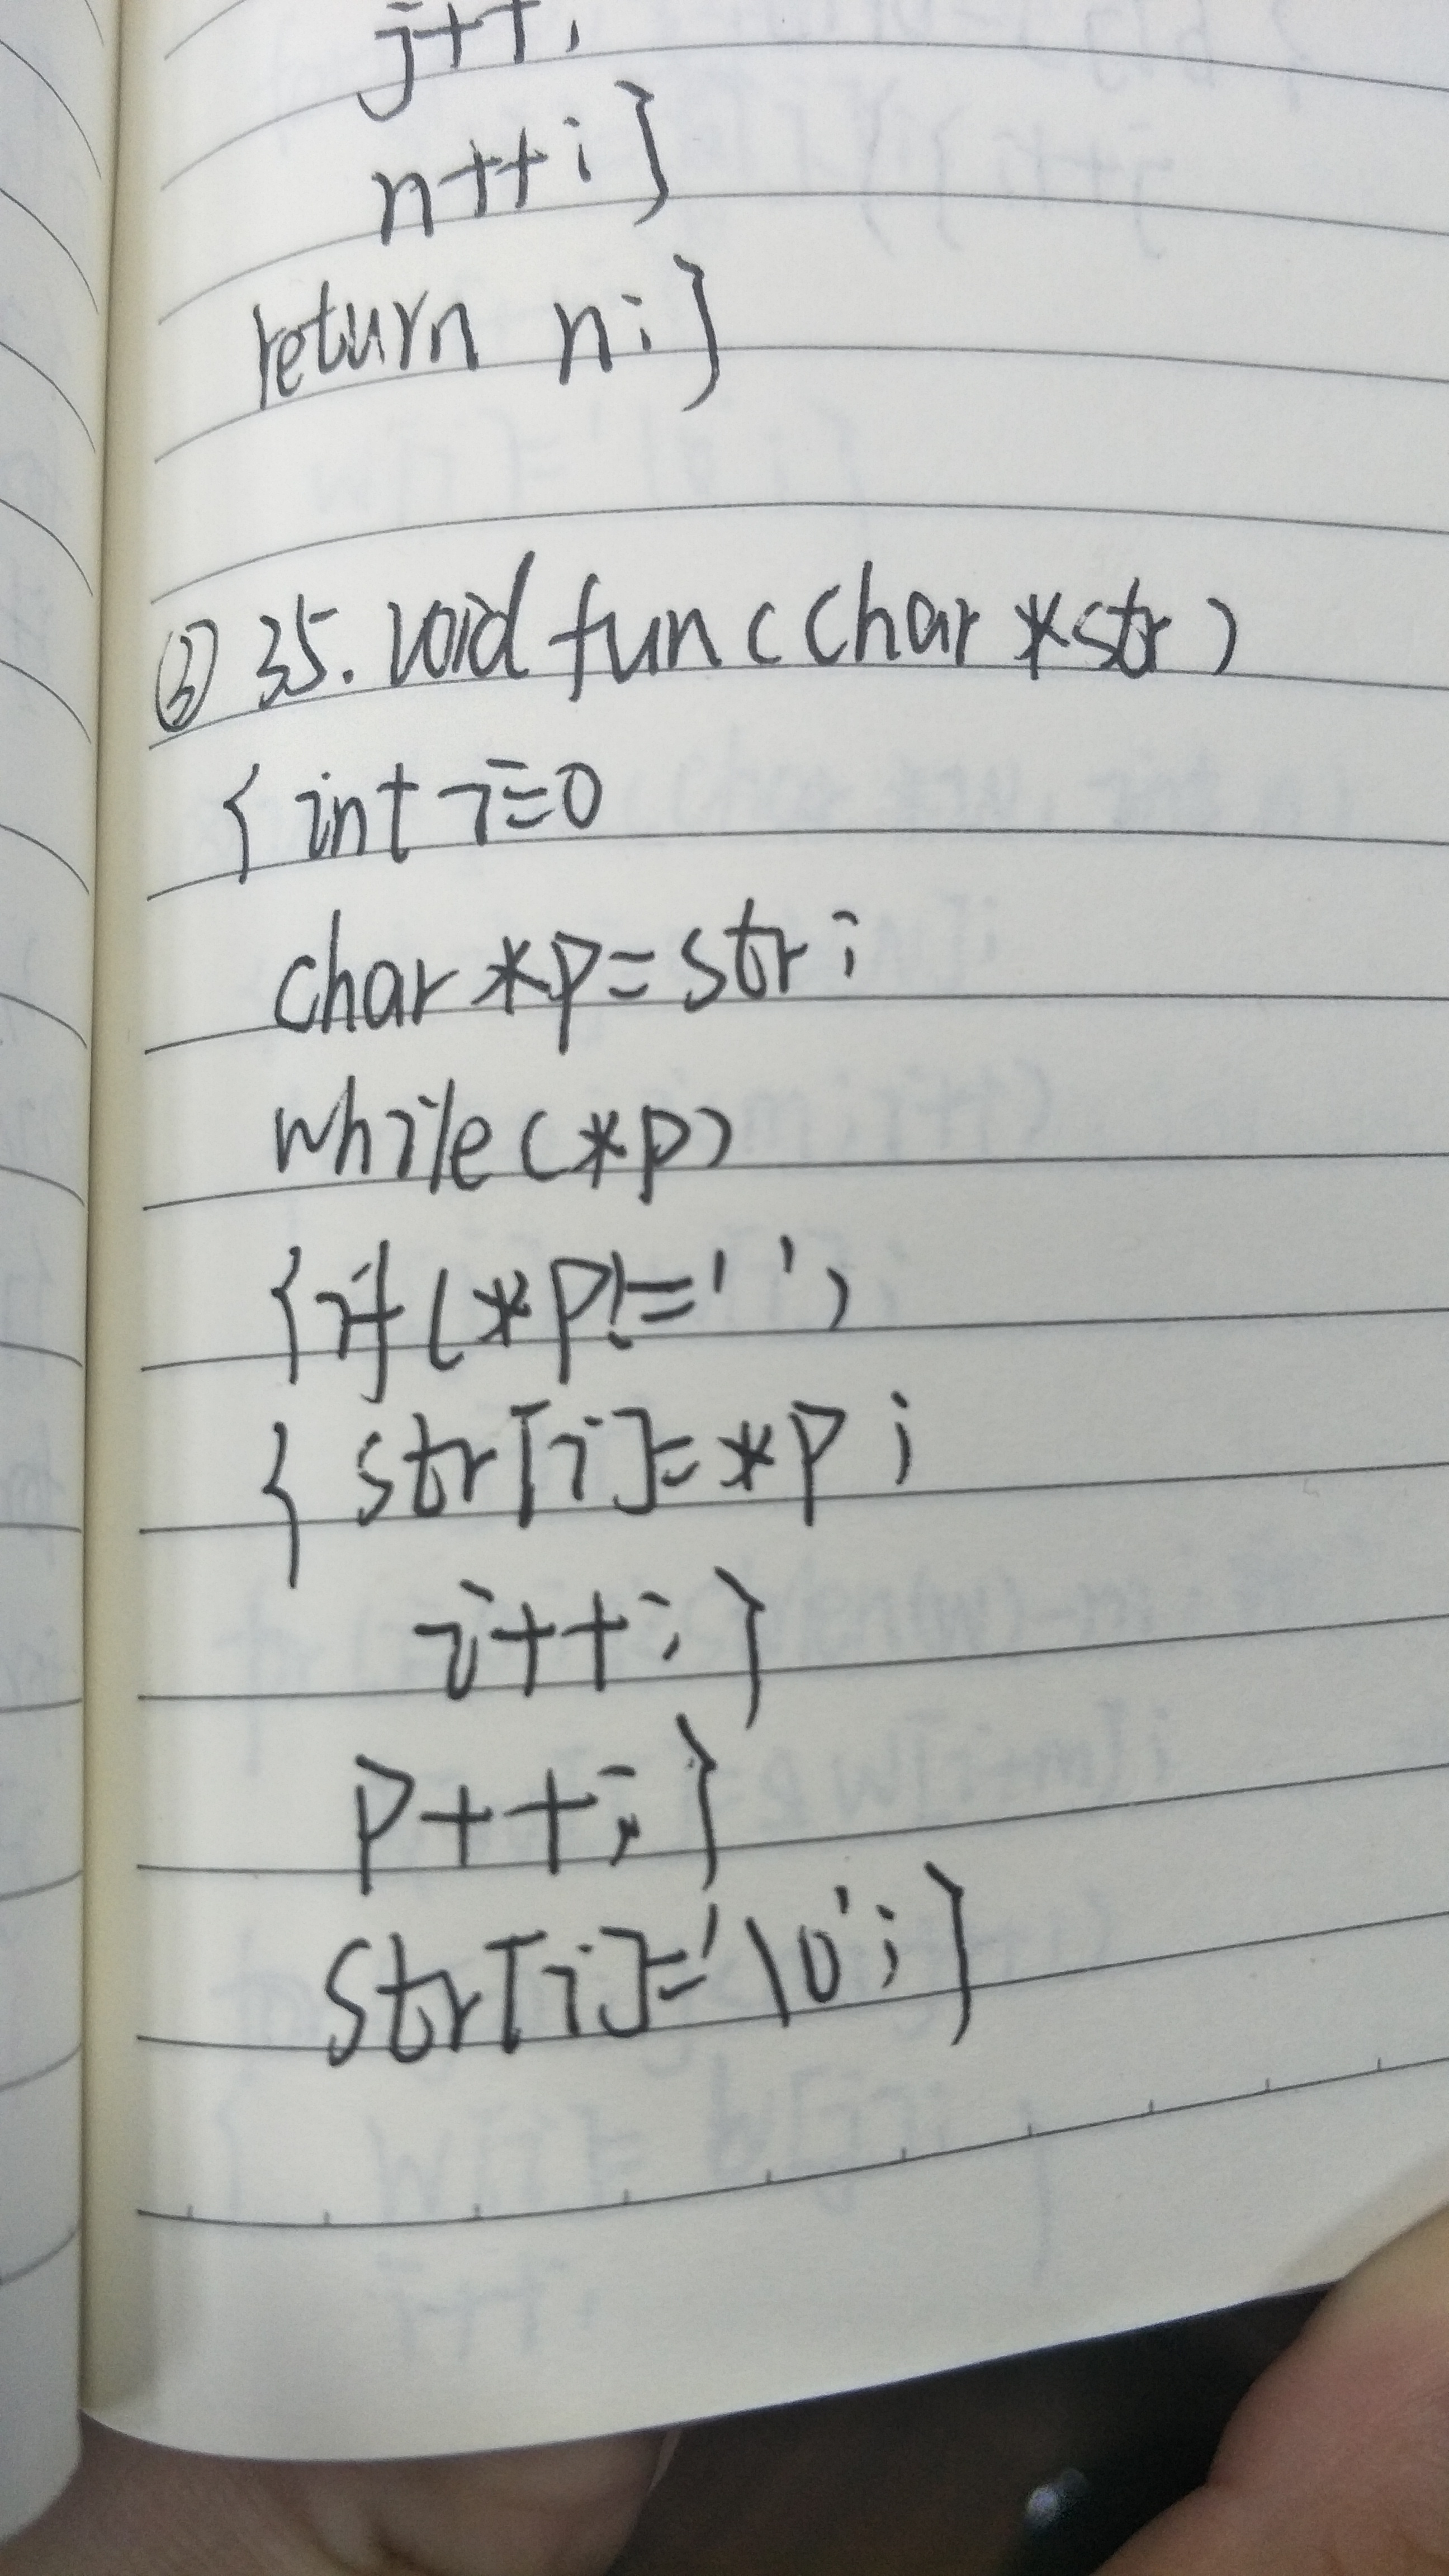 j++;
n++;}
return n;}
③ 35. void fun (char *str)
{ int i=0
char *p=str;
while(*p)
{if(*p!=' ')
{ str[i]=*p;
i++;}
p++;}
str[i]='\0';}